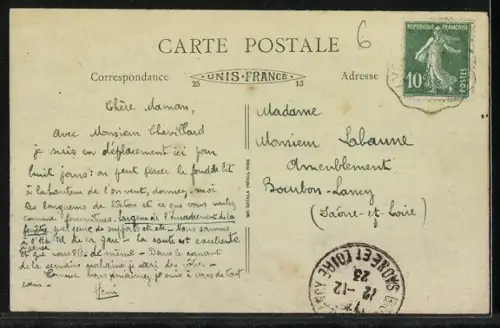 CARTE POSTALE
6
RÉPUBLIQUE FRANÇAISE
10c
POSTES
Correspondance
25 UNIS-FRANCE 13
Adresse
Chère Maman,
avec Monsieur Chevillard
je suis en déplacement ici pour
huit jours: on peut placer le fond de lit
à la hauteur de l'on veut, donnez-moi
les longueurs de bâton et ce que vous voulez
comme fournitures. largeur de l'encadrement de la
fenêtre,
de la gare - la santé est excellente
et que vous de même - Dans le courant
de la semaine prochaine je serai des vôtres.
Comme bons je suis à vous de tout
cœur. Henri
Madame
Monsieur Labaune
Ameublement
Bourbon-Lancy
(Saône-et-Loire)
SAONE ET LOIRE
12-12
23